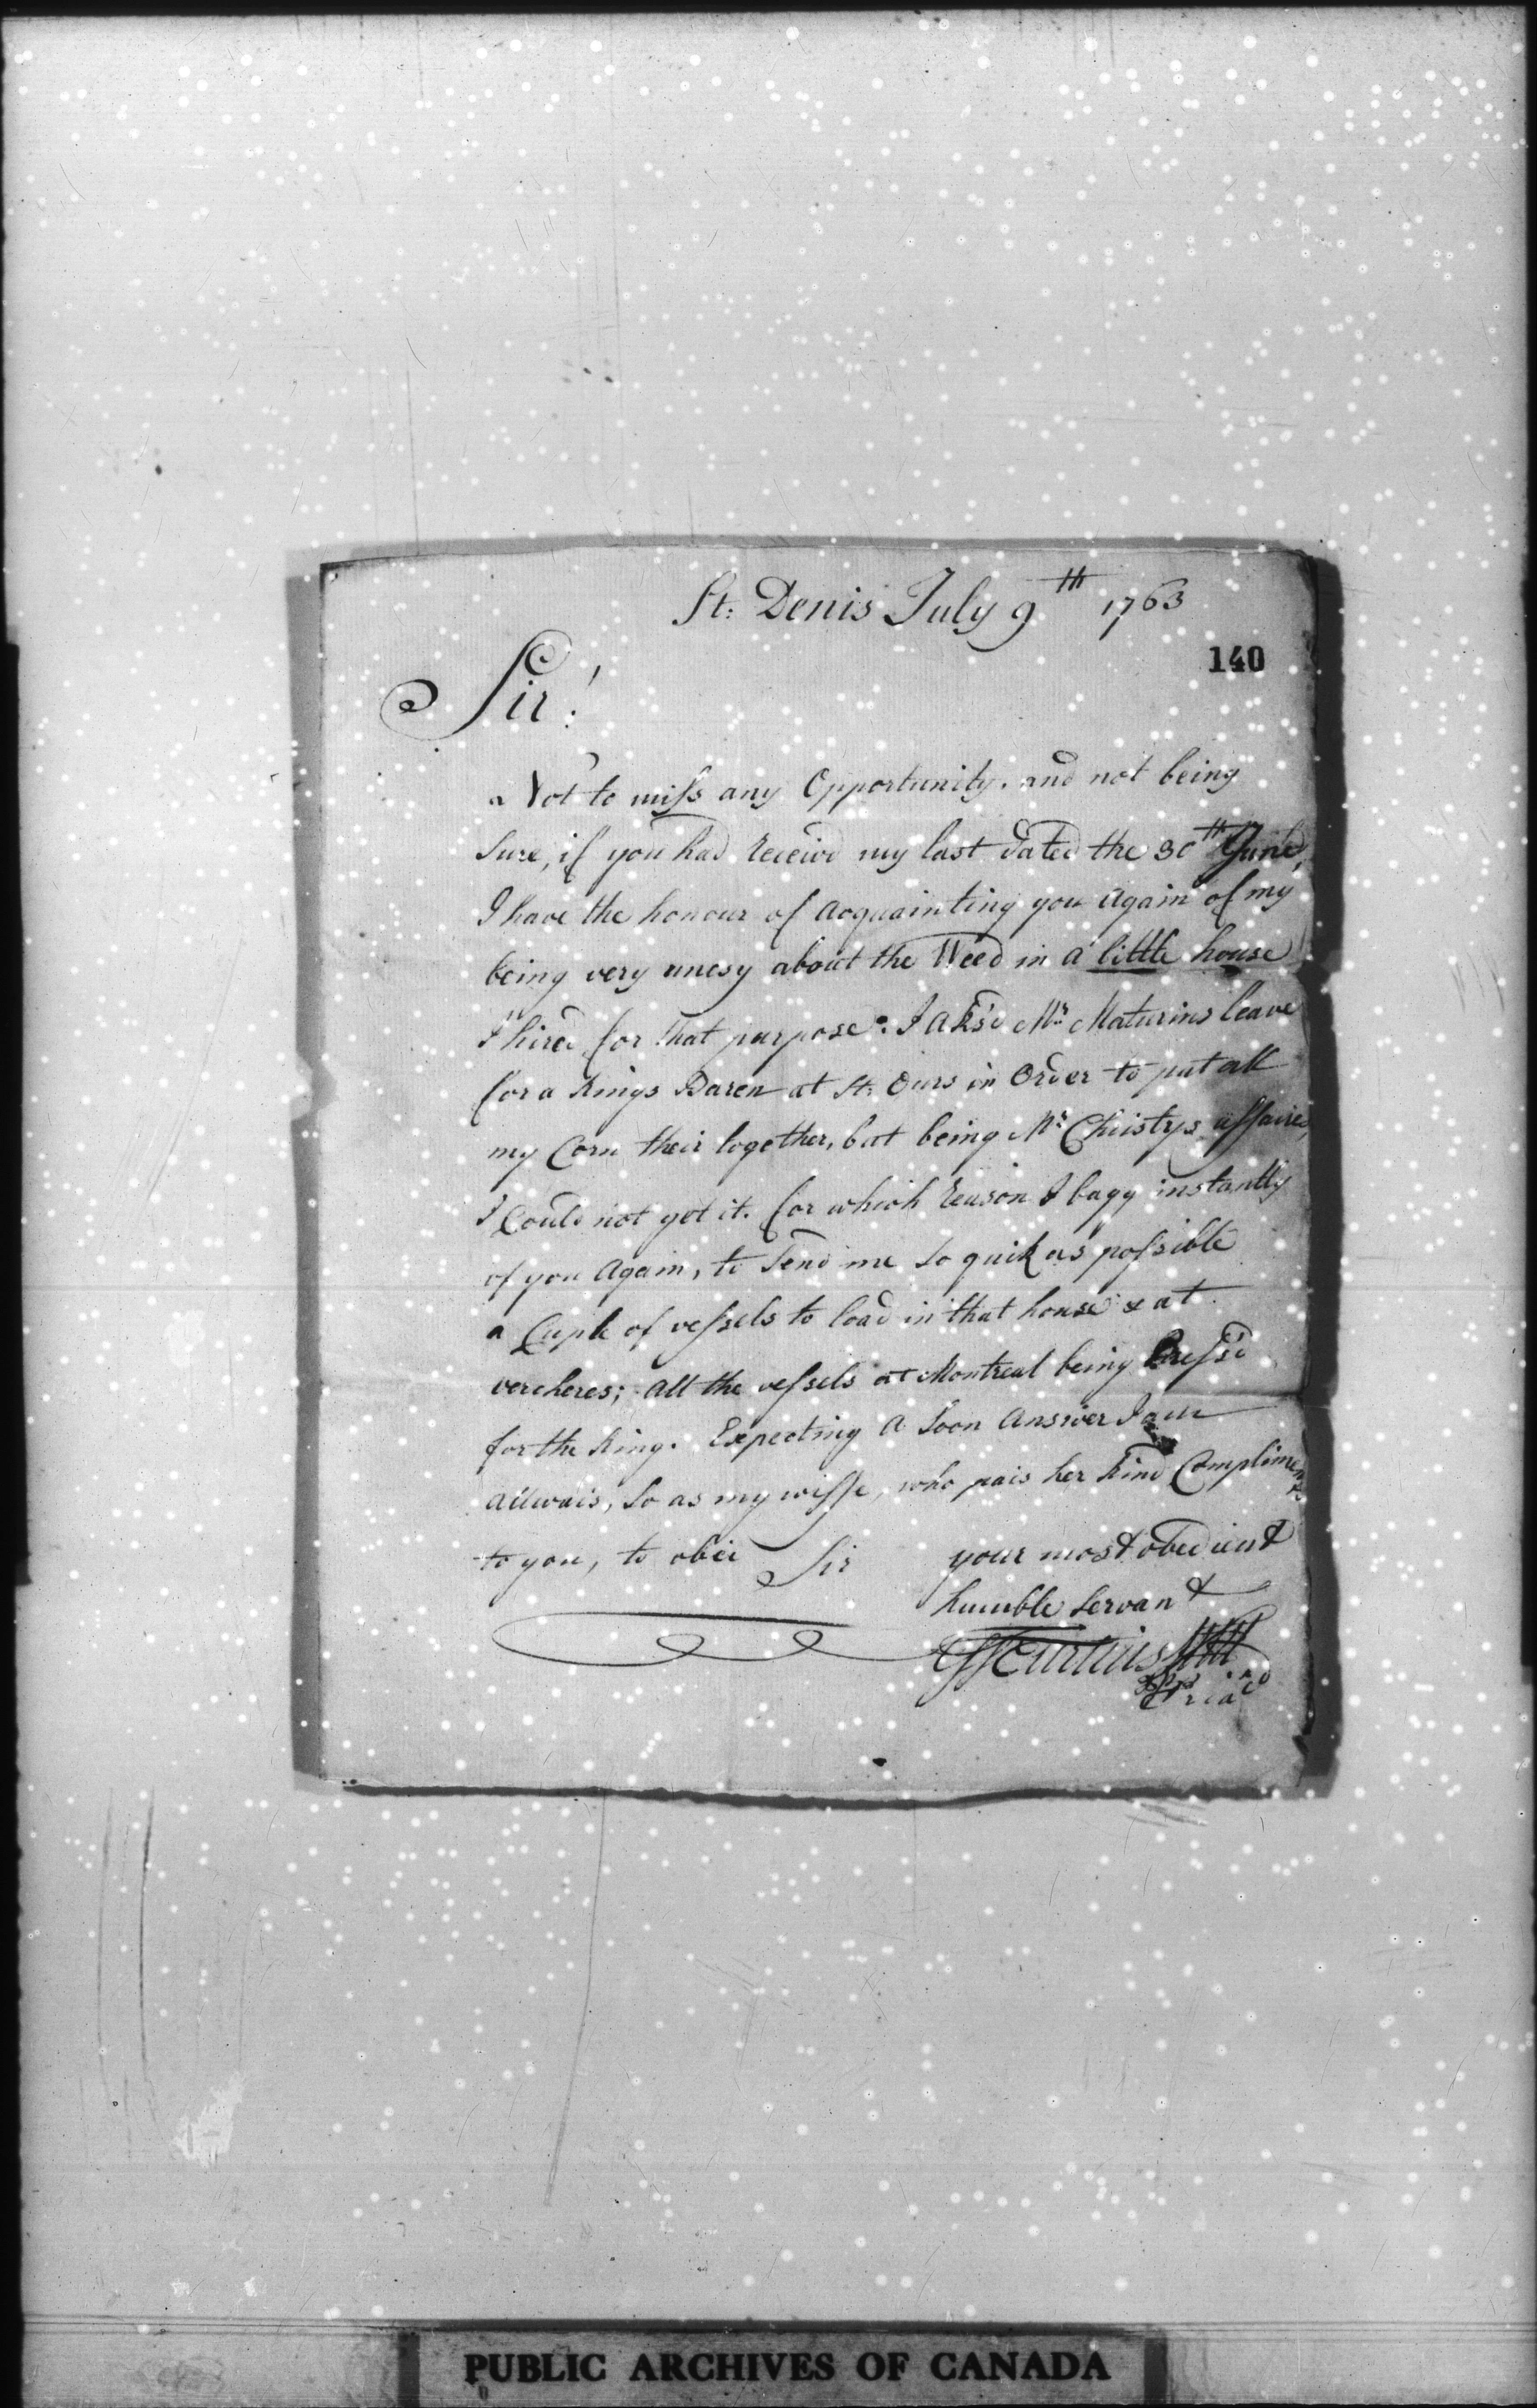 St: Denis July 9th 1763
140
Sir!
Not to miss any Opportunity, and not being
sure, if you had receivd my last dated the 30th June,
I have the honour of acquainting you again of my
being very unesy about the Weed in a little house
I hired for that purpose: I aks'd Mr Maturins leave
for a Kings Baren at St: Ours in Order to put all
my Corn their together, but being Mr Christys affaires,
I Could not get it. for which reason I bagg instantly
of you Again, to send me so quik as possible
a Cuple of vessels to load in that house & at
vercheres; All the vessels at Montreal being Press'd
for the King. Expecting a soon Answer I am
allwais, so as my wiffe, who pais her kind Compliments
to you, to obei Sir your most obedient
humble servant
Curtius
PUBLIC ARCHIVES OF CANADA